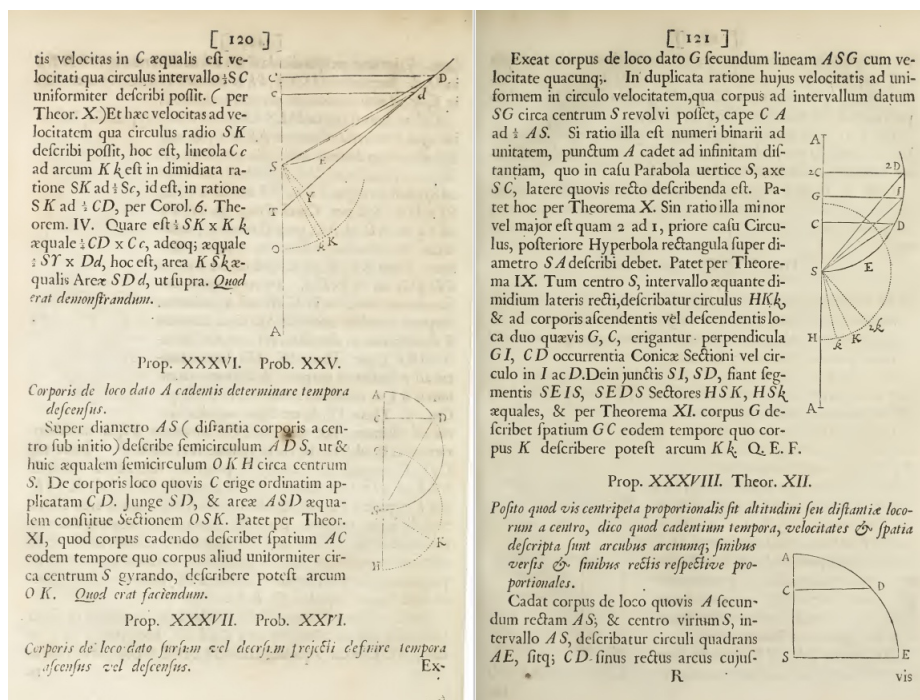 [ 120 ]
tis velocitas in C æqualis eſt ve-
locitati qua circulus intervallo ½S C
uniformiter deſcribi poſſit. ( per
Theor. X.) Et hæc velocitas ad ve-
locitatem qua circulus radio SK
deſcribi poſſit, hoc eſt, lineola C c
ad arcum K k eſt in dimidiata ra-
tione SK ad ½Sc, id eſt, in ratione
S K ad ½ CD, per Corol. 6. The-
orem. IV. Quare eſt ½ SK x K k
æquale ½ CD x C c, adeoq; æquale
½ SY x Dd, hoc eſt, area K Sk æ-
qualis Areæ SD d, ut ſupra. Quod
erat demonſtrandum.
C
D
c
d
S
E
Y
T
O
k K
A
Prop. XXXVI. Prob. XXV.
Corporis de loco dato A cadentis determinare tempora
deſcenſus.
Super diametro AS ( diſtantia corporis a cen-
tro ſub initio) deſcribe ſemicirculum A D S, ut &
huic æqualem ſemicirculum O K H circa centrum
S. De corporis loco quovis C erige ordinatim ap-
plicatam C D. Junge SD, & areæ ASD æqua-
lem conſtitue Sectionem OSK. Patet per Theor.
XI, quod corpus cadendo deſcribet ſpatium AC
eodem tempore quo corpus aliud uniformiter cir-
ca centrum S gyrando, deſcribere poteſt arcum
O K. Quod erat faciendum.
A
C
D
S
K
H
Prop. XXXVII. Prob. XXVI.
Corporis de loco dato ſurſum vel deorſum projecti definire tempora
aſcenſus vel deſcenſus.
Ex-
[ 121 ]
Exeat corpus de loco dato G ſecundum lineam ASG cum ve-
locitate quacunq;. In duplicata ratione hujus velocitatis ad uni-
formem in circulo velocitatem, qua corpus ad intervallum datum
SG circa centrum S revolvi poſſet, cape C A
ad ½ AS. Si ratio illa eſt numeri binarii ad
unitatem, punctum A cadet ad infinitam diſ-
tantiam, quo in caſu Parabola uertice S, axe
S C, latere quovis recto deſcribenda eſt. Pa-
tet hoc per Theorema X. Sin ratio illa minor
vel major eſt quam 2 ad 1, priore caſu Circu-
lus, poſteriore Hyperbola rectangula ſuper di-
ametro SA deſcribi debet. Patet per Theore-
ma IX. Tum centro S, intervallo æquante di-
midium lateris recti, deſcribatur circulus HKk,
& ad corporis aſcendentis vel deſcendentis lo-
ca duo quævis G, C, erigantur perpendicula
GI, CD occurrentia Conicæ Sectioni vel cir-
culo in I ac D. Dein junctis SI, SD, fiant ſeg-
mentis SEIS, SEDS Sectores HSK, HSk
æquales, & per Theorema XI. corpus G de-
ſcribet ſpatium GC eodem tempore quo cor-
pus K deſcribere poteſt arcum K k. Q. E. F.
A
2C
2D
G
C
D
S
E
H
k K 2k
A
Prop. XXXVIII. Theor. XII.
Poſito quod vis centripeta proportionalis ſit altitudini ſeu diſtantiæ loco-
rum a centro, dico quod cadentium tempora, velocitates & ſpatia
deſcripta ſunt arcubus arcuumq; ſinibus
verſis & ſinibus rectis reſpective pro-
portionales.
Cadat corpus de loco quovis A ſecun-
dum rectam AS; & centro virium S, in-
tervallo AS, deſcribatur circuli quadrans
AE, ſitq; CD ſinus rectus arcus cujuſ-
A
C
D
S
E
R
vis